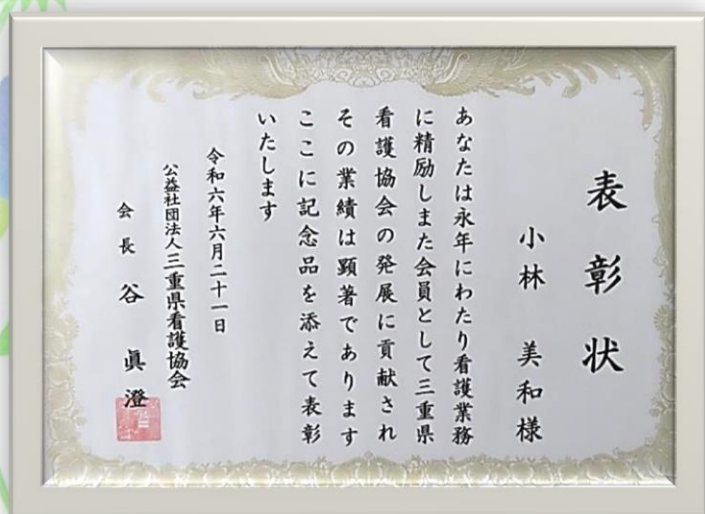 表彰状
小林 美和様
あなたは永年にわたり看護業務
に精励しまた会員として三重県
看護協会の発展に貢献され
その業績は顕著であります
ここに記念品を添えて表彰
いたします
令和六年六月二十一日
公益社団法人三重県看護協会
会長 谷 眞澄